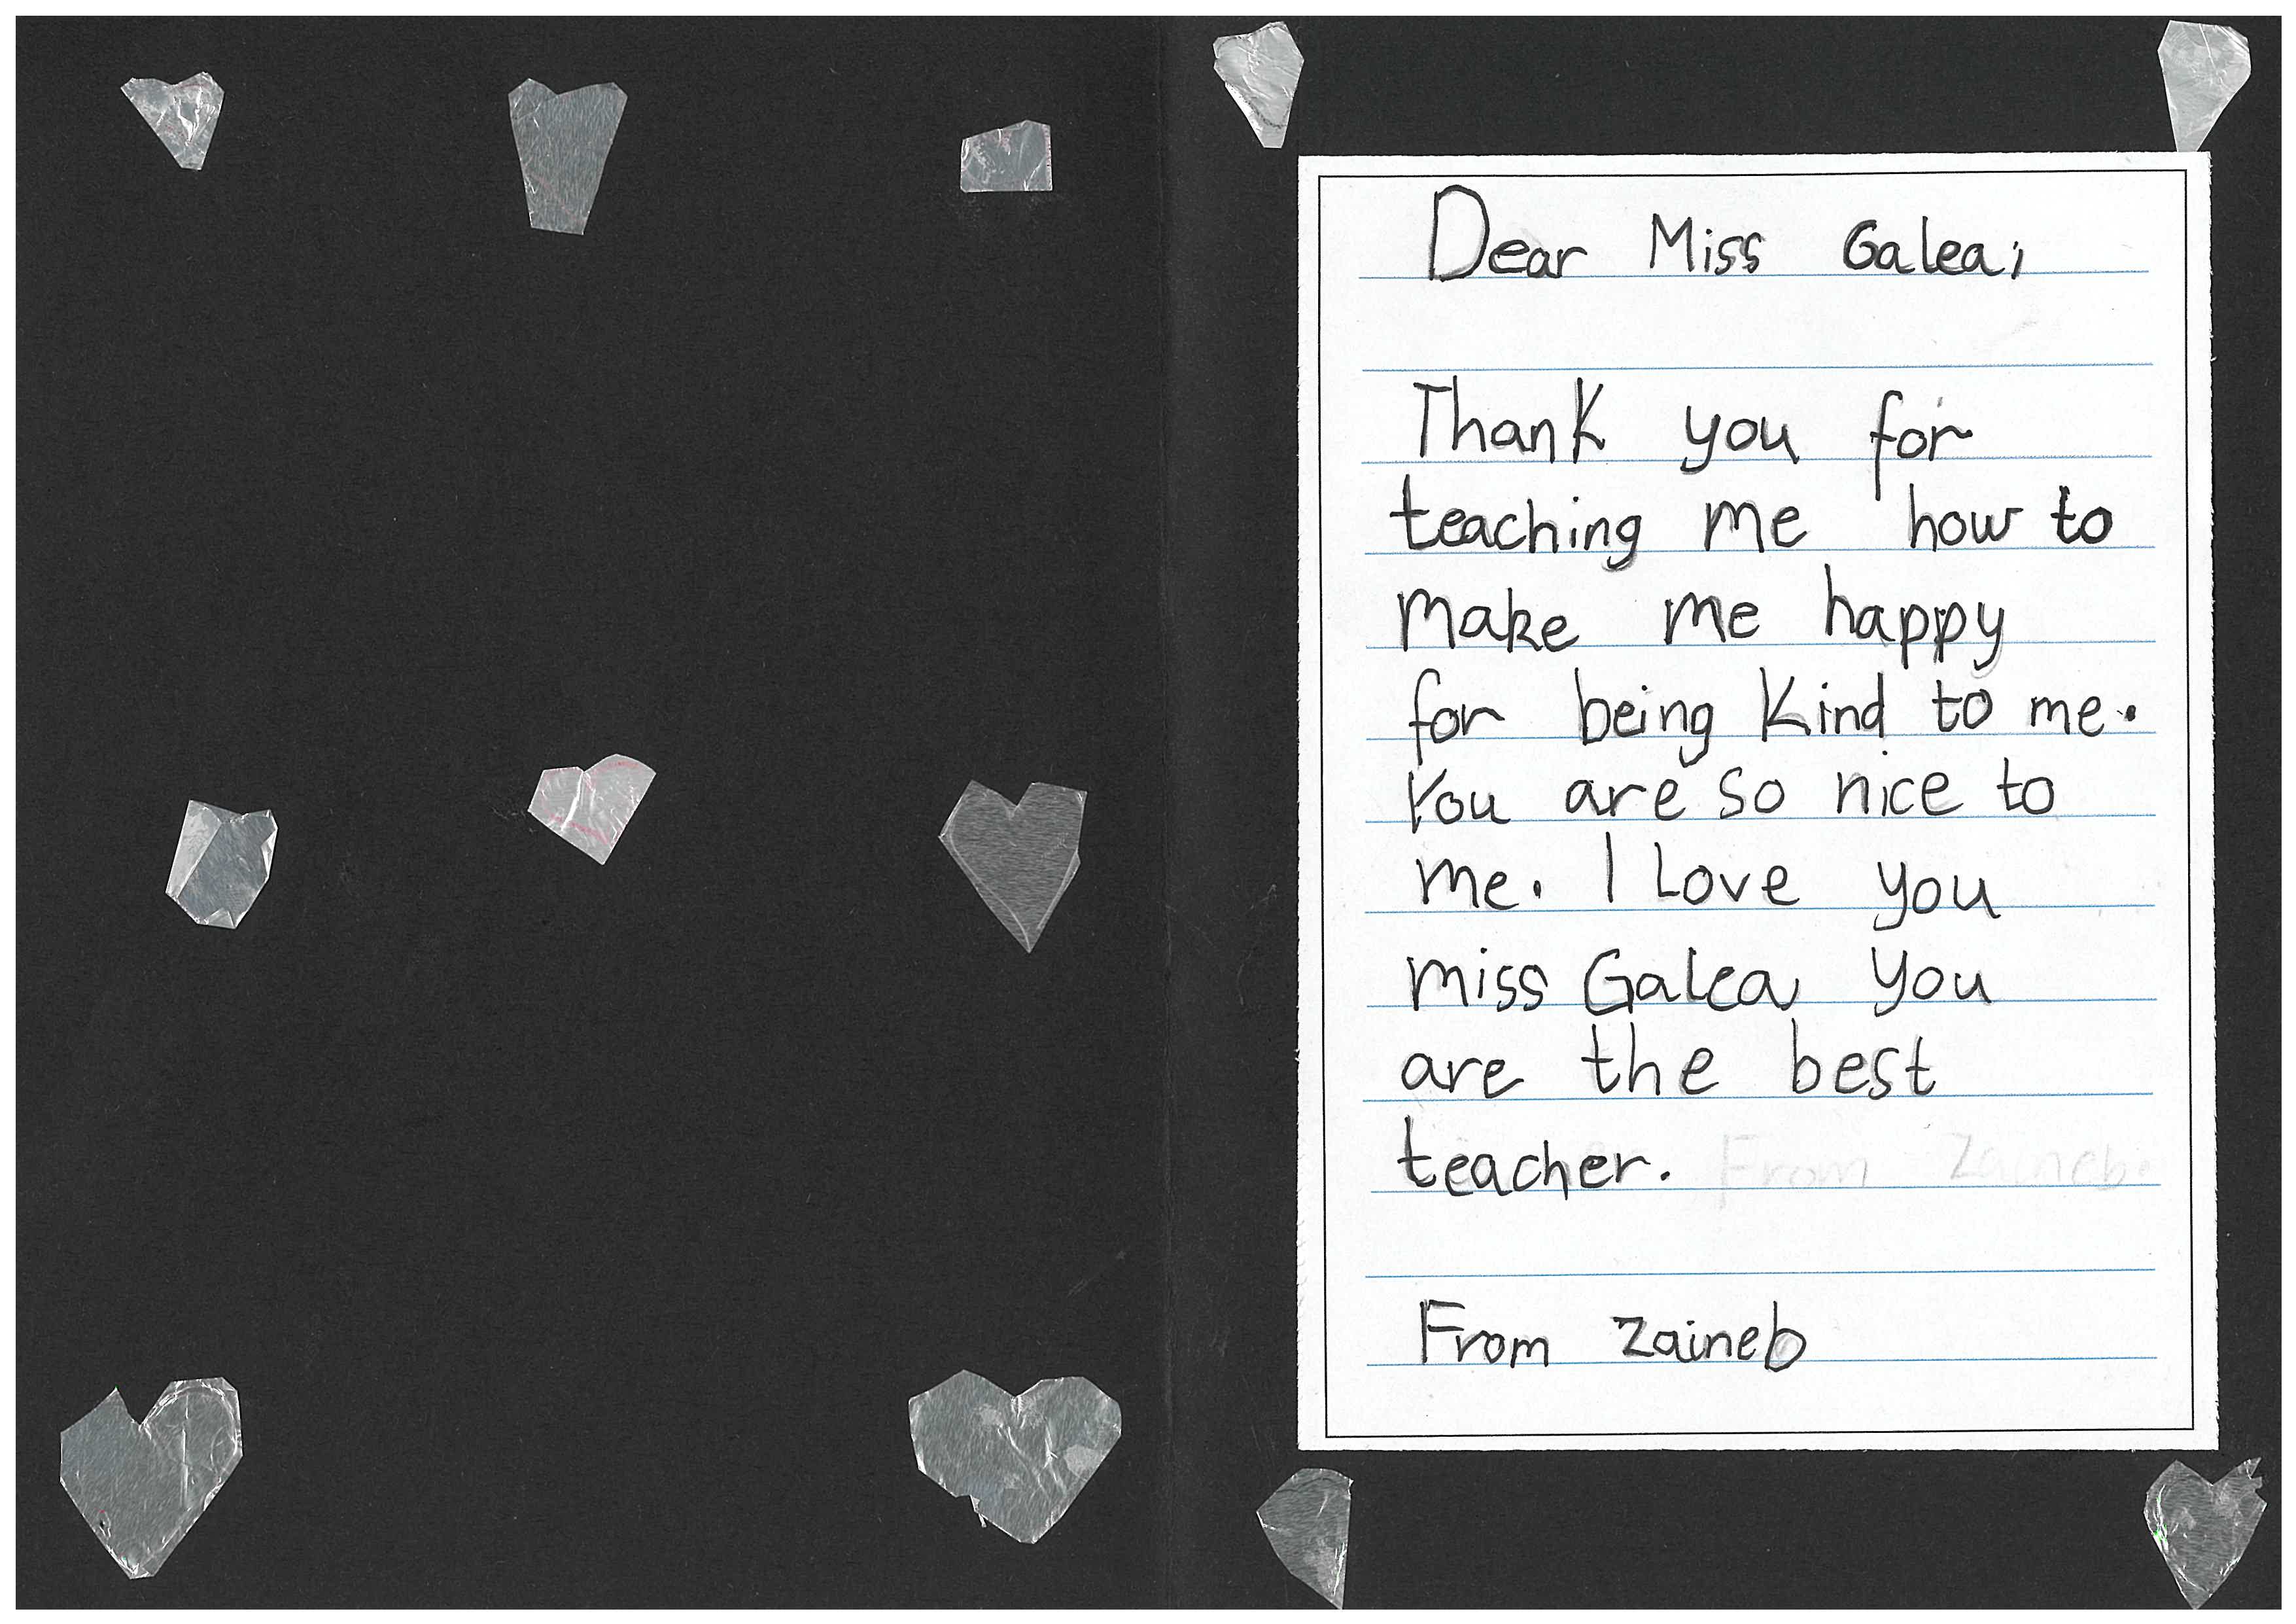 Dear Miss Galea,
Thank you for
teaching me how to
make me happy
for being Kind to me.
You are so nice to
me. I Love you
miss Galea you
are the best
teacher. From Zaineb.
From Zaineb